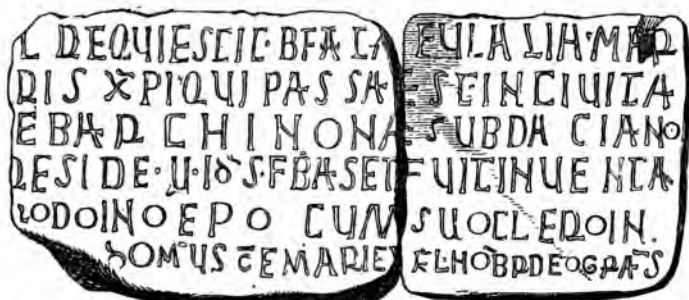 L REQUIESCIT·BEATA EULALIA·MAR
RIS XPI·QUI PASSA EST·IN CIUITA
E BARCHINONA SUB DACIANO
RESIDE·II·IDS·FBAS ET FUIT INUENTA
RODOINO EPO CUM SUO CLERO IN.
DOMUS SCE MARIE X KL NOBR DEO GRAS